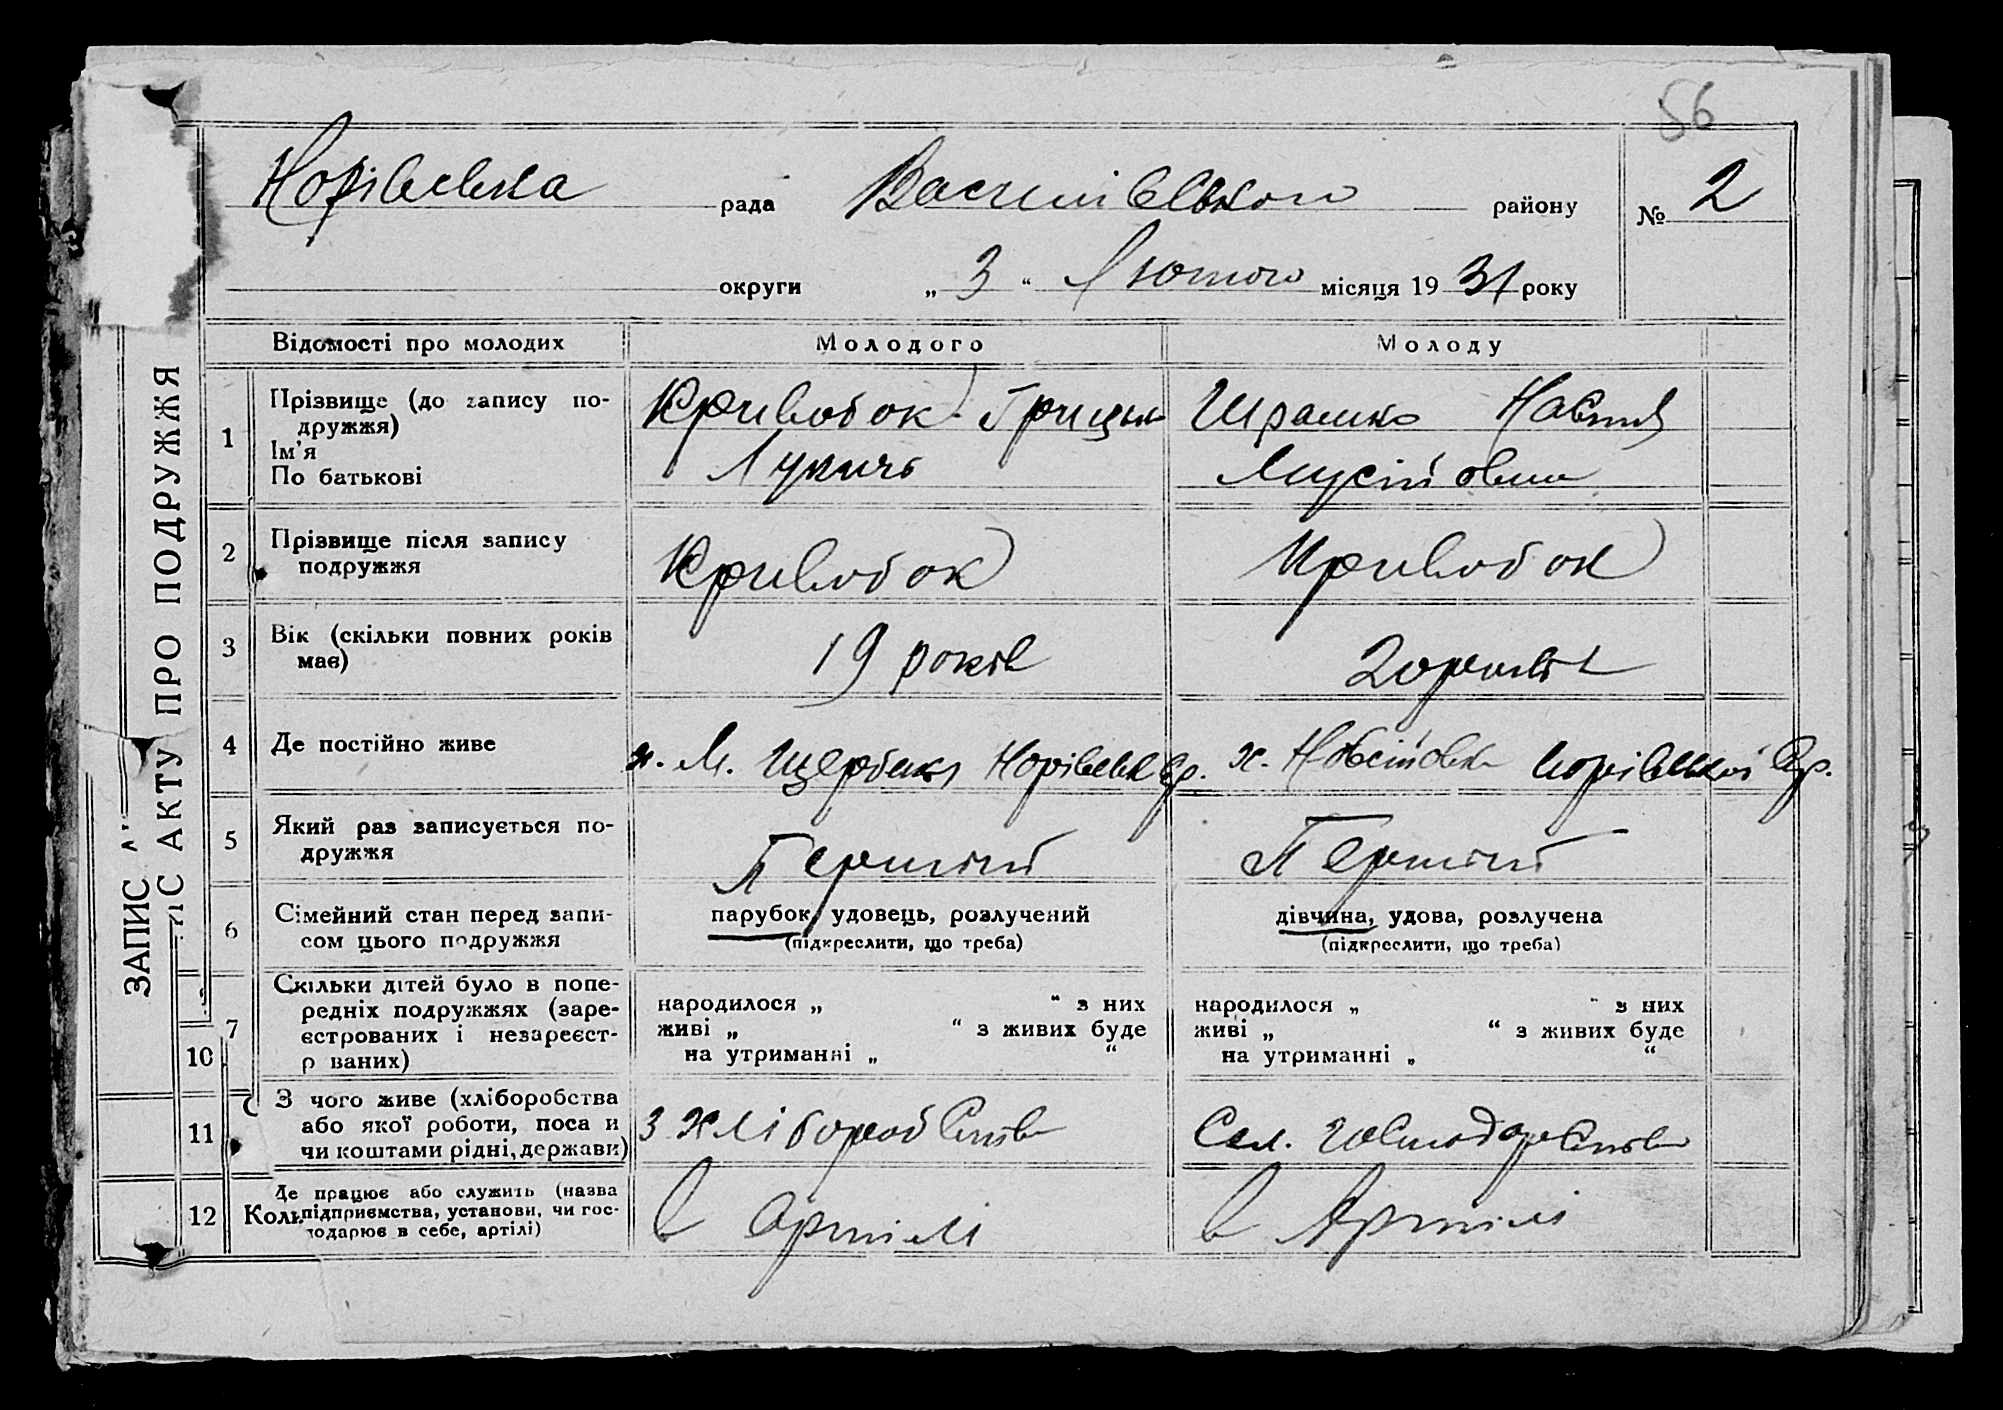 56
Норівська рада Василівського району № 2
округи „ 3 “ Лютого місяця 19 31 року
ЗАПИС
ІС АКТУ ПРО ПОДРУЖЖЯ
Відомості про молодих Молодого Молоду
1 Прізвище (до запису по-
дружжя)
Ім'я
По батькові
Кривобок Грицько
Лукичь
Мусійовна
2 Прізвище після запису
подружжя
Кривобок Кривобок
3 Вік (скільки повних років
має)
19 років 20 років
4 Де постійно живе
х. М. Щербаки Норівськ ср. х. Норівської Ср.
5 Який раз записується по-
дружжя
Перший Перший
6 Сімейний стан перед запи-
сом цього подружжя
парубок, удовець, розлучений дівчина, удова, розлучена
(підкреслити, що треба) (підкреслити, що треба)
7 Скільки дітей було в попе-
редніх подружжях (заре-
єстрованих і незареєст-
р ваних)
народилося „ “ з них народилося „ “ з них
живі „ “ з живих буде живі „ “ з живих буде
на утриманні „ “ на утриманні „ “
10
11 З чого живе (хліборобства
або якої роботи, поса и
чи коштами рідні, держави)
З хліборобства Сел. господарства
12 Коль
Де працює або служить (назва
підприємства, установи, чи гос-
подарює в себе, артілі)
в артілі в Артілі